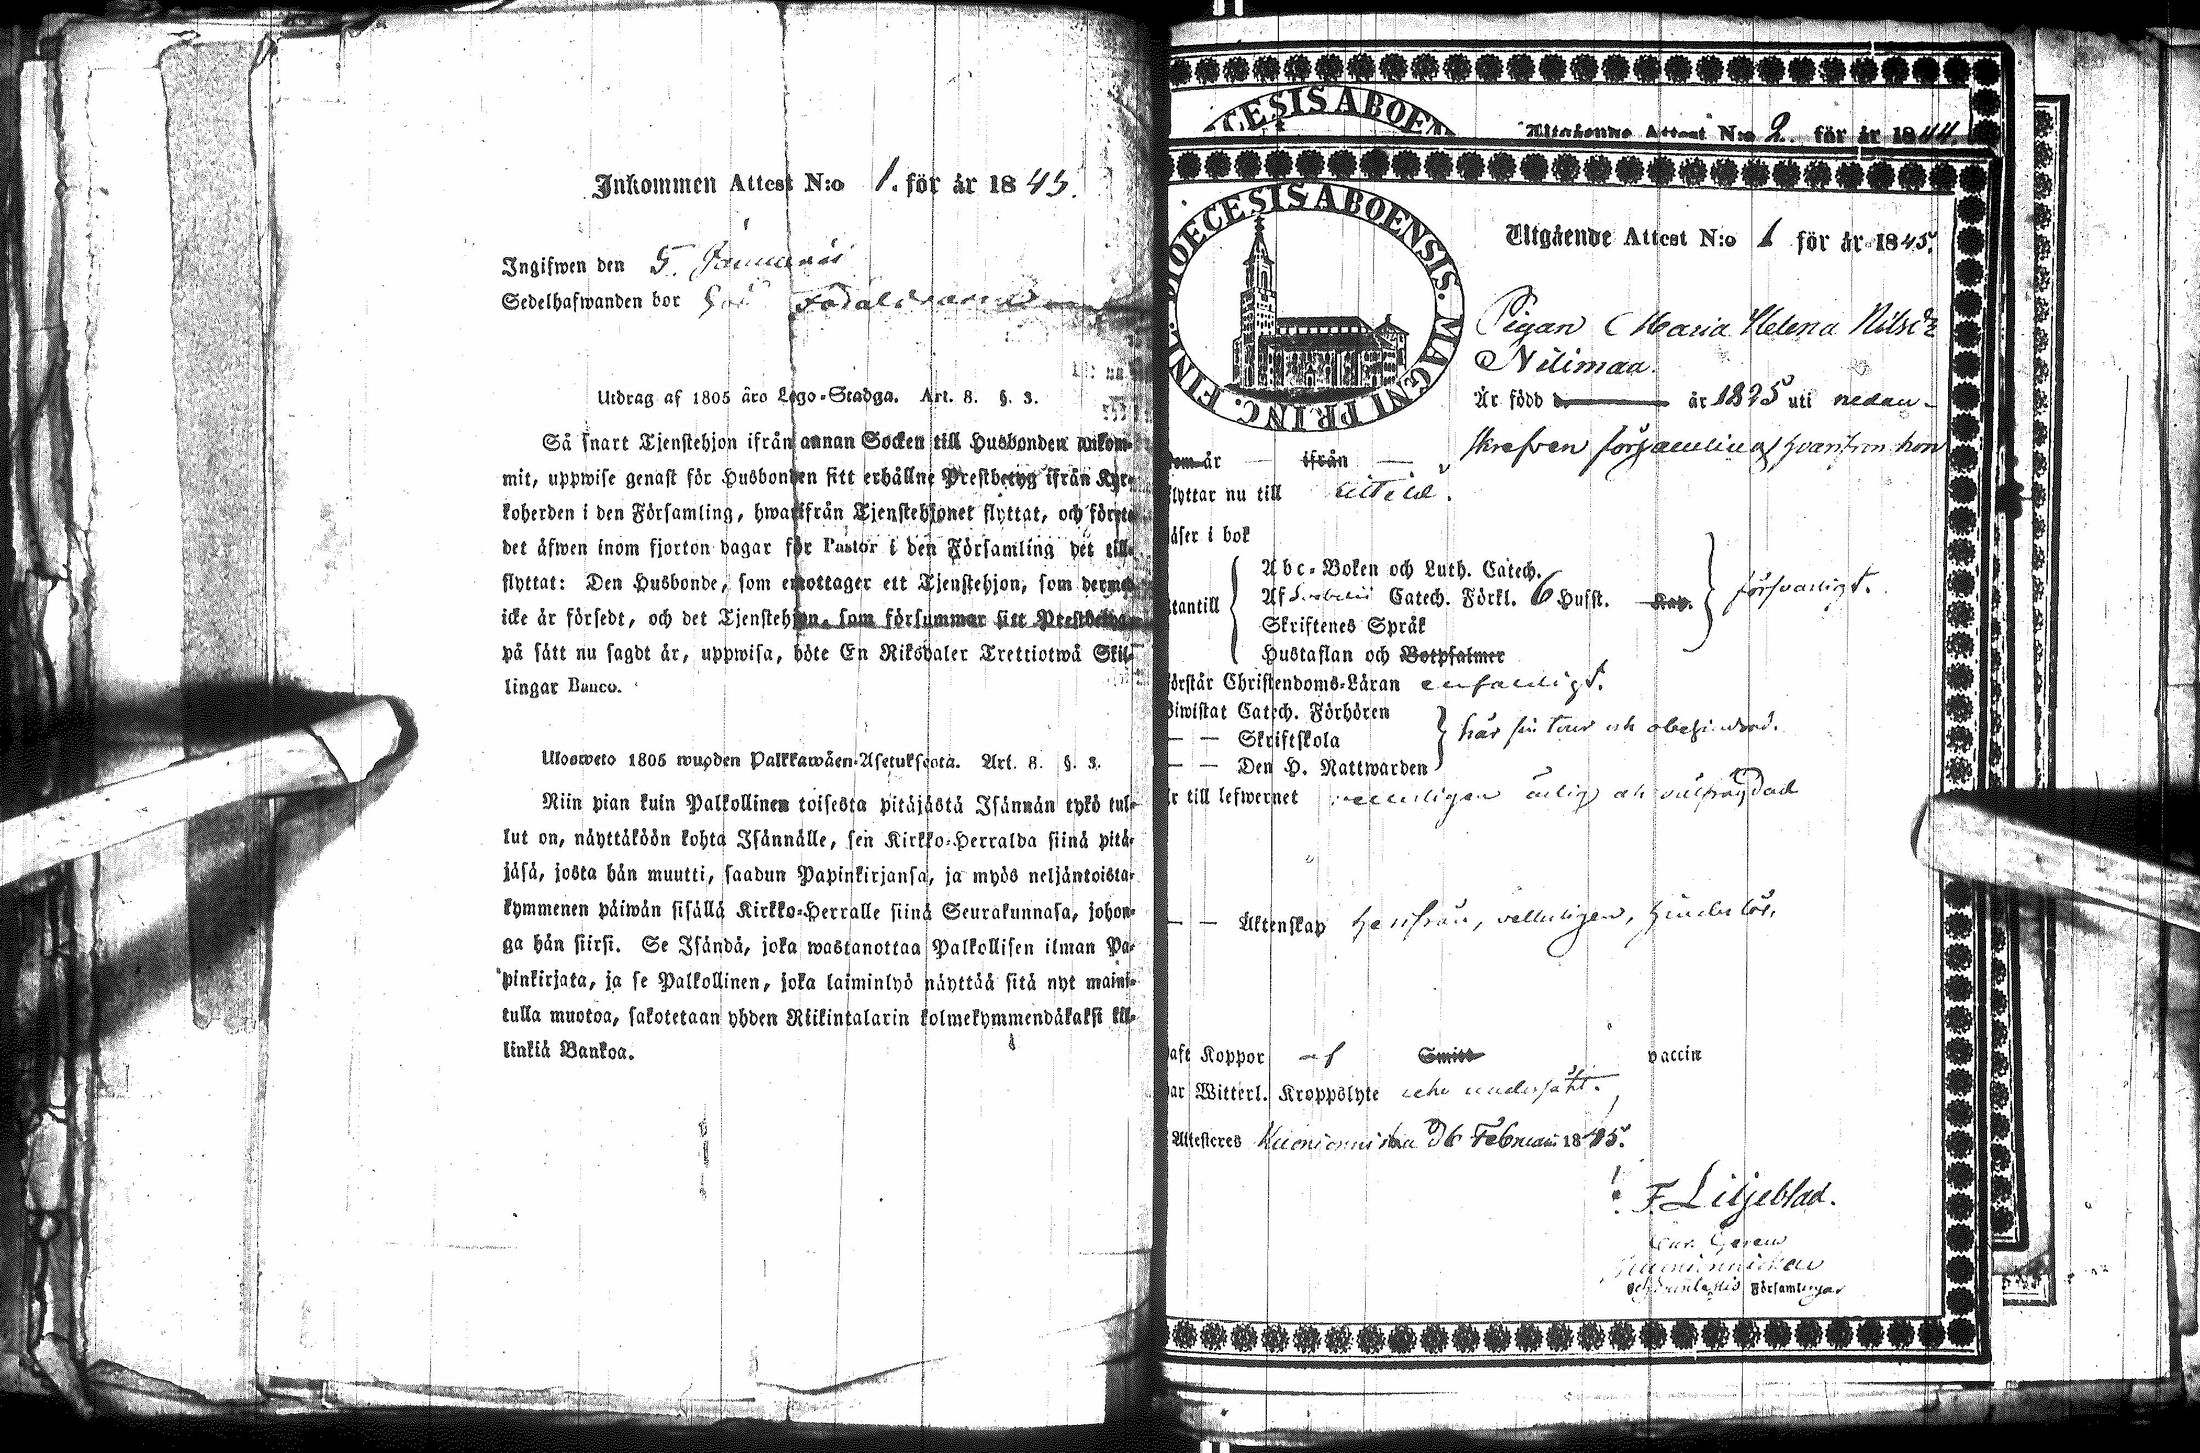 Inkommen Attest N:o 1. för år 1845.
Ingifwen den 5. Januarii
Sedelhafwanden bor hos Föräldrarne
Utdrag af 1805 års Lego-Stadga. Art. 8. §. 3.
Så snart Tjenstehjon ifrån annan Socken till Husbonden ankom-
mit, uppwise genast för Husbonden sitt erhållne Prestbetyg ifrån Kyr-
koherden i den Församling, hwarifrån Tjenstehjonet flyttat, och förete
det äfwen inom fjorton dagar för Pastor i den Församling det till-
flyttat: Den Husbonde, som emottager ett Tjenstehjon, som dermed
icke är försedt, och det Tjenstehjon, som försummar sitt Prestbetyg
på sätt nu sagdt är, uppwisa, böte En Riksdaler Trettiotwå Skil-
lingar Banco.
Ulosweto 1805 wuoden Palkkawäen-Asetuksesta. Art. 8. §. 3.
Niin pian kuin Palkollinen toisesta pitäjästä Isännän tykö tul-
lut on, näyttäköön kohta Isännälle, sen Kirkko-Herralda siinä pitä-
jäsä, josta hän muutti, saadun Papinkirjansa, ja myös neljäntoista-
kymmenen päiwän sisällä Kirkko-Herralle siinä Seurakunnasa, johon-
ga hän siirsi. Se Isändä, joka wastanottaa Palkollisen ilman Pa-
pinkirjata, ja se Palkollinen, joka laiminlyö näyttää sitä nyt maini-
tulla muotoa, sakotetaan yhden Riikintalarin kolmekymmendäkaksi kil-
linkiä Bankoa.
CESIS ABOEN
Utgående Attest N:o 2. för år 1844.
DIOECESIS ABOENSIS. MAGNI PRINC. FINL.
Utgående Attest N:o 1 för år 1845.
Pigan Maria Helena Nilsdr
Nilimaa.
Är född d. år 1825 uti nedan-
skrefven församling hvarifrån hon
som år — ifrån —
flyttar nu till
läser i bok
Abc-Boken och Luth. Catech.
Af Svebelii Catech. Förkl. 6 Hufst. Kap.
utantill försvarligt.
Skriftenes Språk
Hustaflan och Botpsalmer
förstår Christendoms-Läran enfaldigt.
Biwistat Catech. Förhören
— — Skriftskola här sin tour och obehindrad.
— — Den H. Nattwarden
är till lefwernet veterligen ärlig och välfrägdad
— — Äktenskap hemfrån, vetterligen, hinderlös.
haft Koppor af Smitt vaccin
har Witterl. Kroppslyte icke undersökt.
Attesteres Muonionniska 26 Februarii 1845.
F. Liljeblad.
Muonionniska
Församlingar